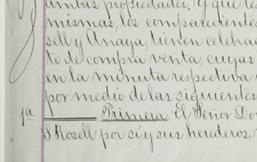 ambas propiedades. Y que re
mismas, los comparecentes
sell y Anaya, tienen celebra
to de compra venta, cuyas
en la minuta respectiva
por medio de las siguientes
1a Primera El Señor Do
J. Rosell por sí y sus herederos,